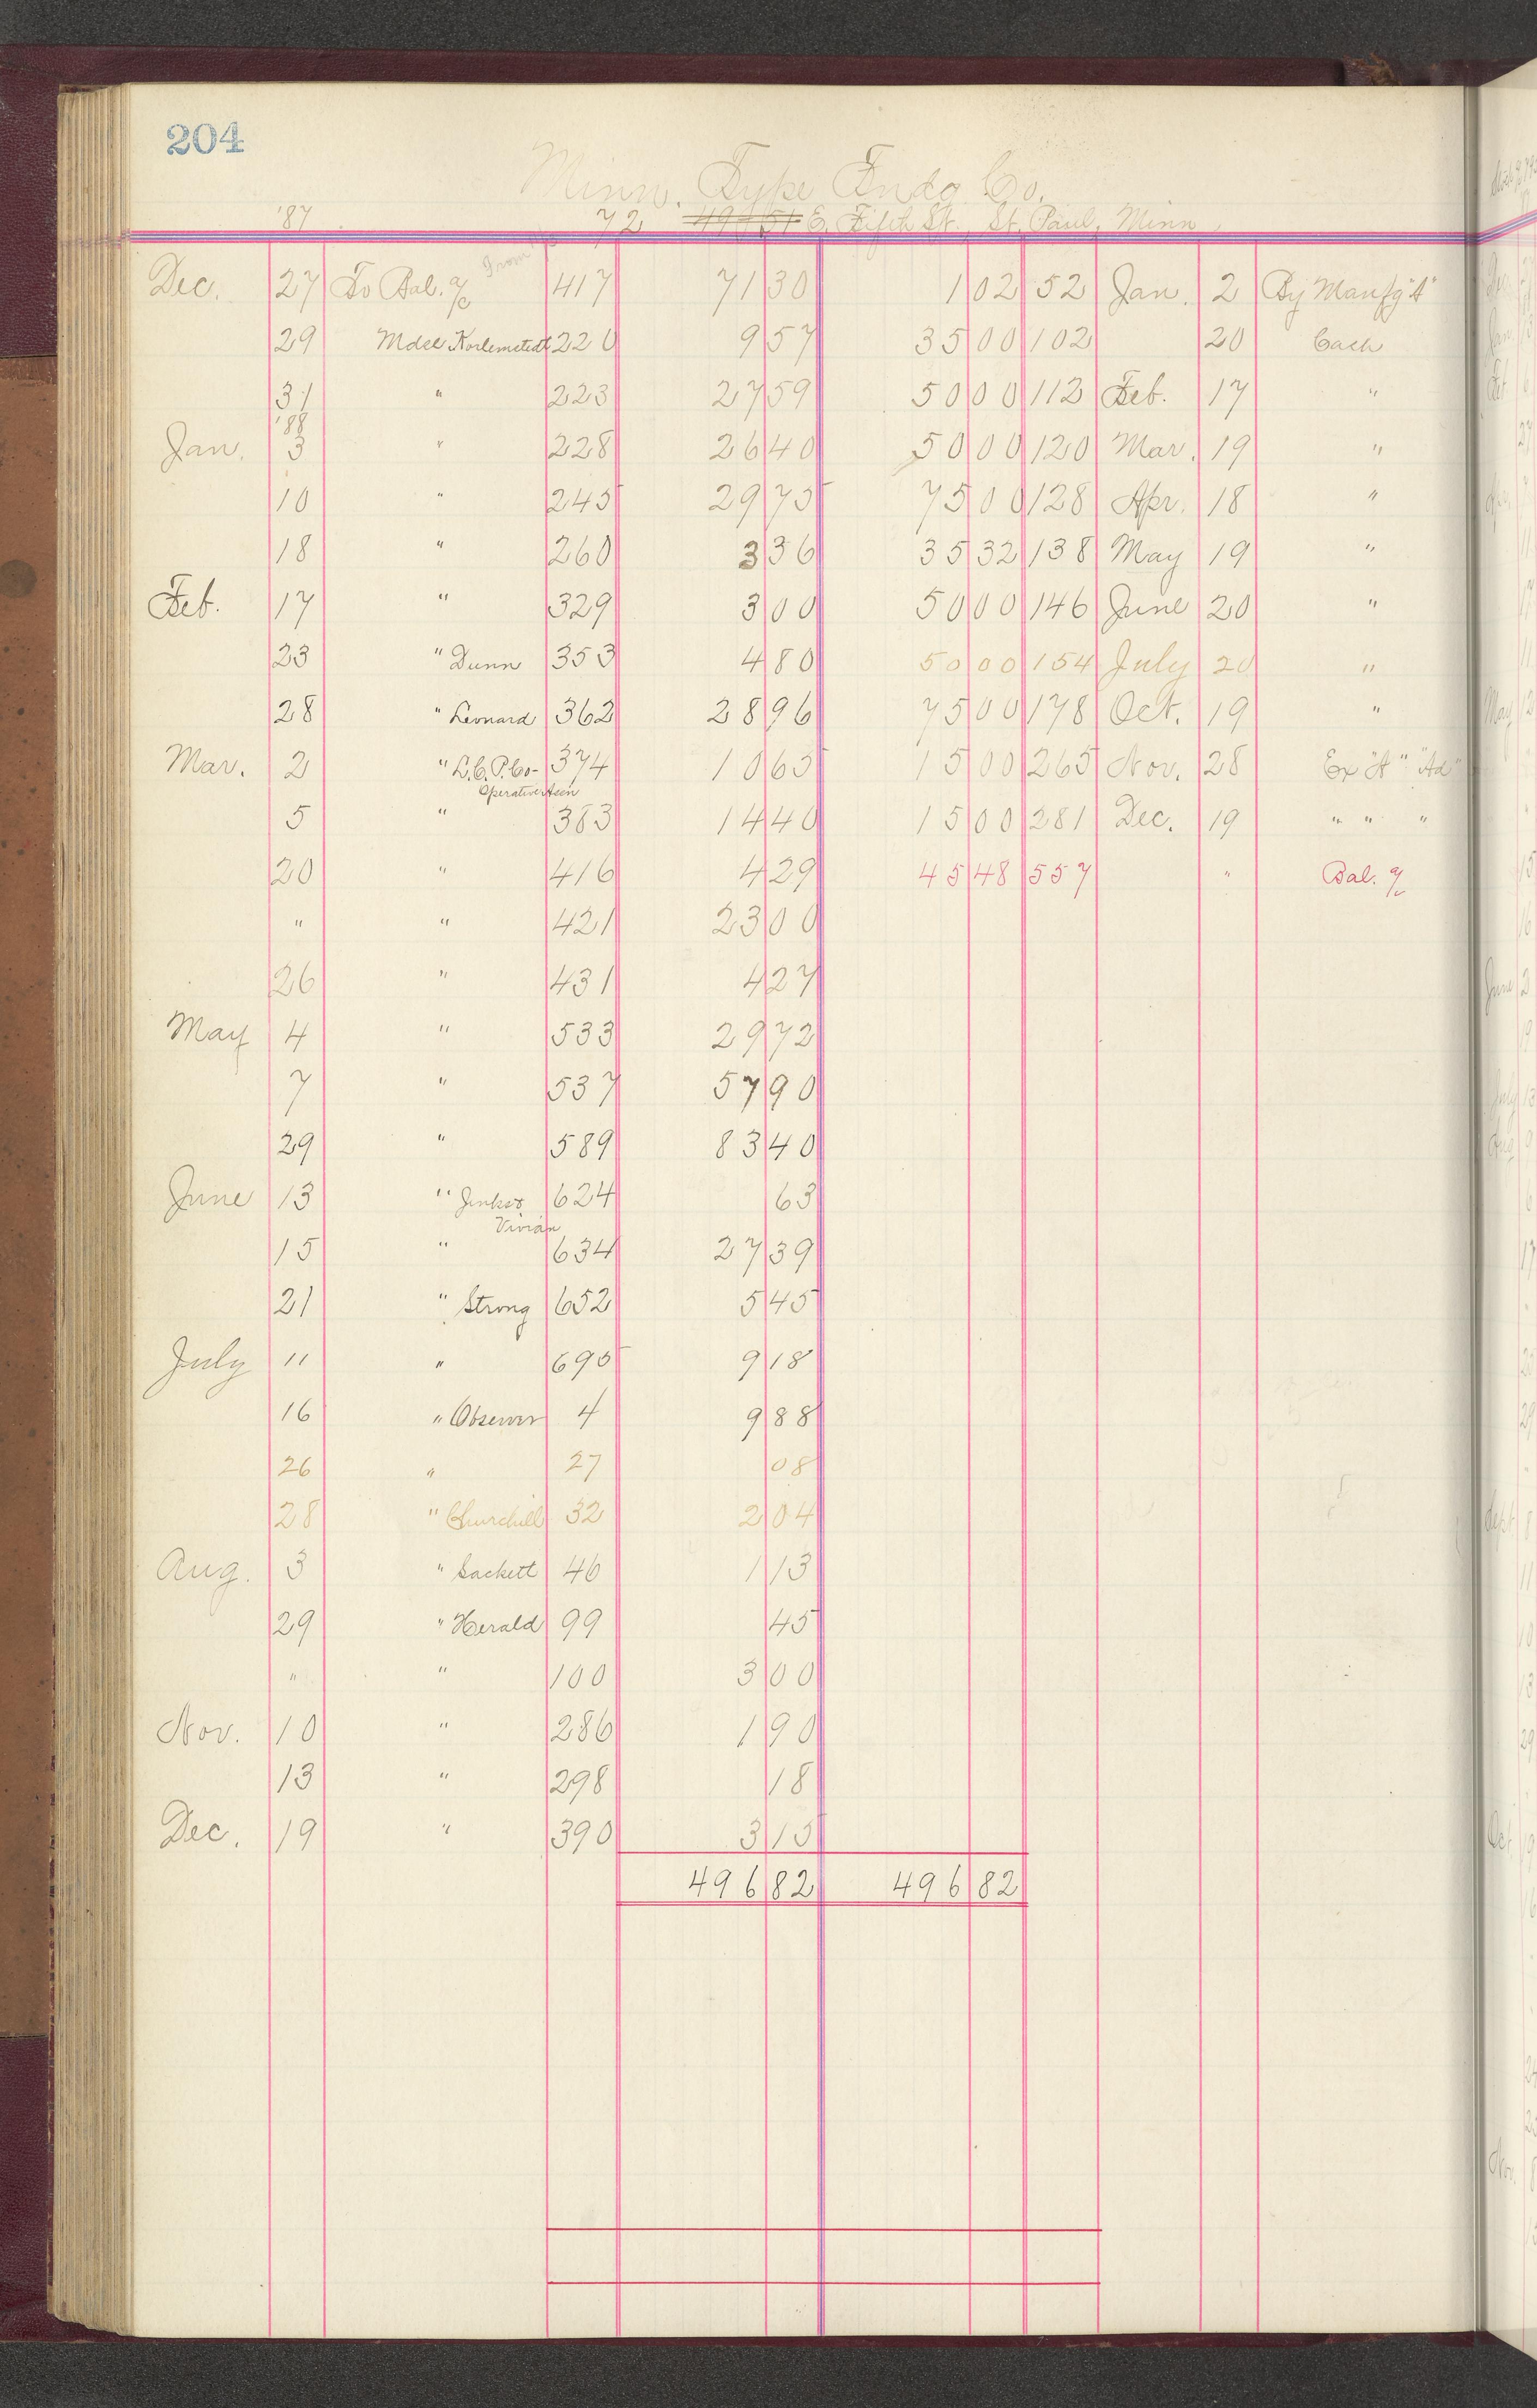 204
Minn. Type Fndg Co.
'87 72 49 & 51 E. Fifth St. St. Paul, Minn
Dec. 27 To Bal. a/c from 417 71 30 1 02 52 Jan. 2 By Manfg "A"
29 Mdse 220 9 57 35 00 102 20 Cash
31 " 223 27 59 50 00 112 Feb. 17 "
'88
Jan. 3 " 228 26 40 50 00 120 Mar. 19 "
10 " 245 29 75 75 00 128 Apr. 18 "
18 " 260 3 36 35 32 138 May 19 "
Feb. 17 " 329 3 00 50 00 146 June 20 "
23 " Dunn 353 4 80 50 00 154 July 20 "
28 " Leonard 362 28 96 75 00 178 Oct. 19 "
Mar. 2 " L.C.P. Co- 374 10 65 15 00 265 Nov. 28 Ex "A" "Ad"
Operative Assn
5 " 383 14 40 15 00 281 Dec. 19 " " "
20 " 416 4 29 45 48 557 " Bal. a/c
" " 421 23 00
26 " 431 4 27
May 4 " 533 29 72
7 " 537 57 90
29 " 589 83 40
June 13 " Jinks & 624 63
Vivian
15 " 634 27 39
21 " Strong 652 5 45
July 11 " 695 9 18
16 " Observer 4 9 88
26 " 27 08
28 " Churchill 32 2 04
Aug. 3 " Sackett 46 1 13
29 " Herald 99 45
" " 100 3 00
Nov. 10 " 286 1 90
13 " 298 18
Dec. 19 " 390 3 15
496 82 496 82